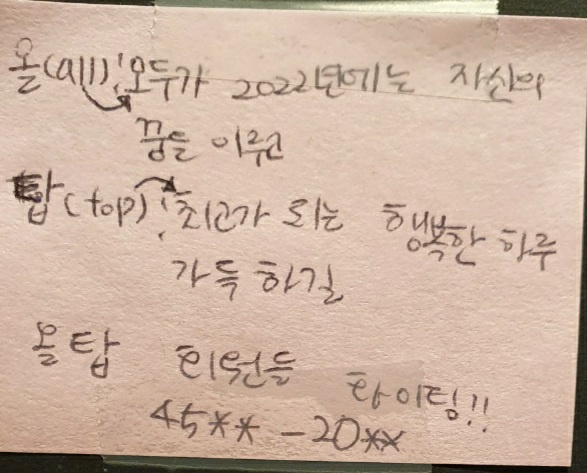 올(all)!모두가 2022년에는 자신의
꿈을 이루고
탑(top)!최고가 되는 행복한 하루
가득 하길
올탑 회원들 화이팅!!
45** -20**